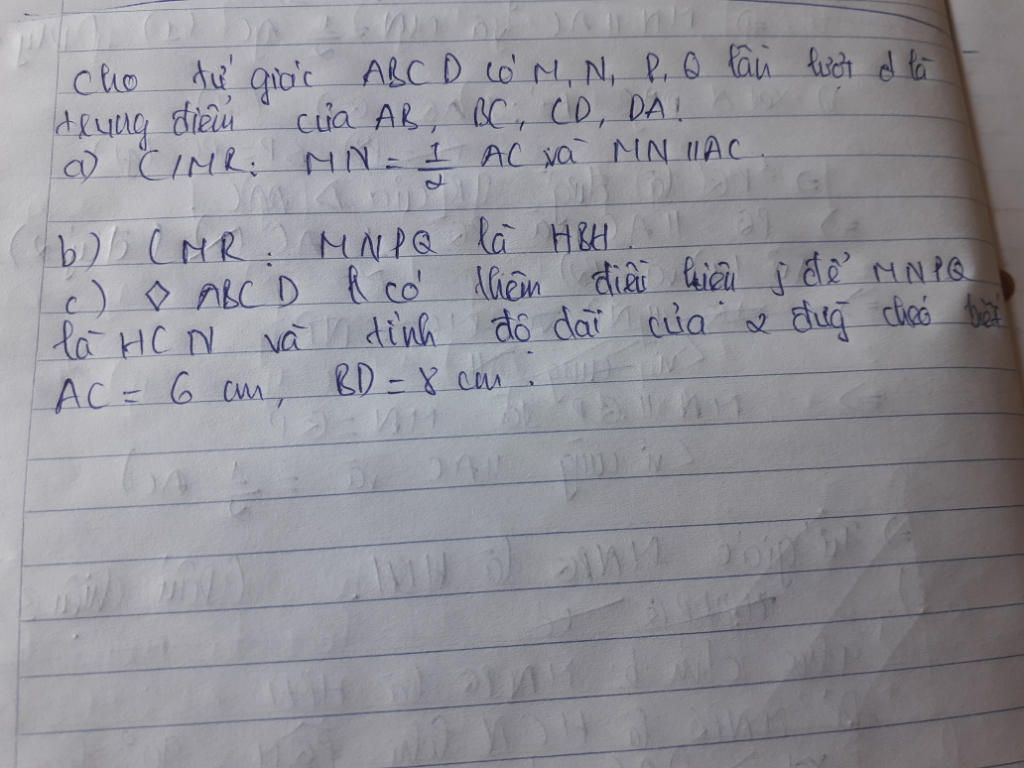 Cho tứ giác ABCD có M, N, P, Q lần lượt là
trung điểm của AB, BC, CD, DA.
a) C/MR: MN = 1/2 AC và MN // AC.
b) CMR: MNPQ là HBH.
c) ◇ ABCD có thêm điều kiện j để MNPQ
là HCN và tính độ dài của 2 đưg chéo biết
AC = 6 cm, BD = 8 cm.